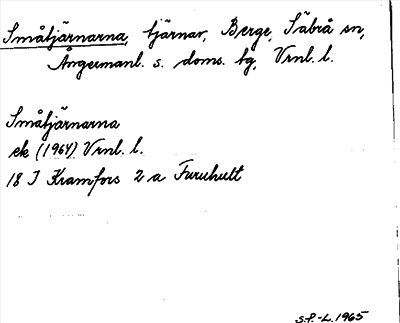 Småtjärnarna, tjärnar, Berge, Säbrå sn,
Ångermanl. s. doms. tg, Vrnl. l.
Småtjärnarna
ek (1964) Vrnl. l.
18 I Kramfors 2 a Furuhult
S.P.-L. 1965